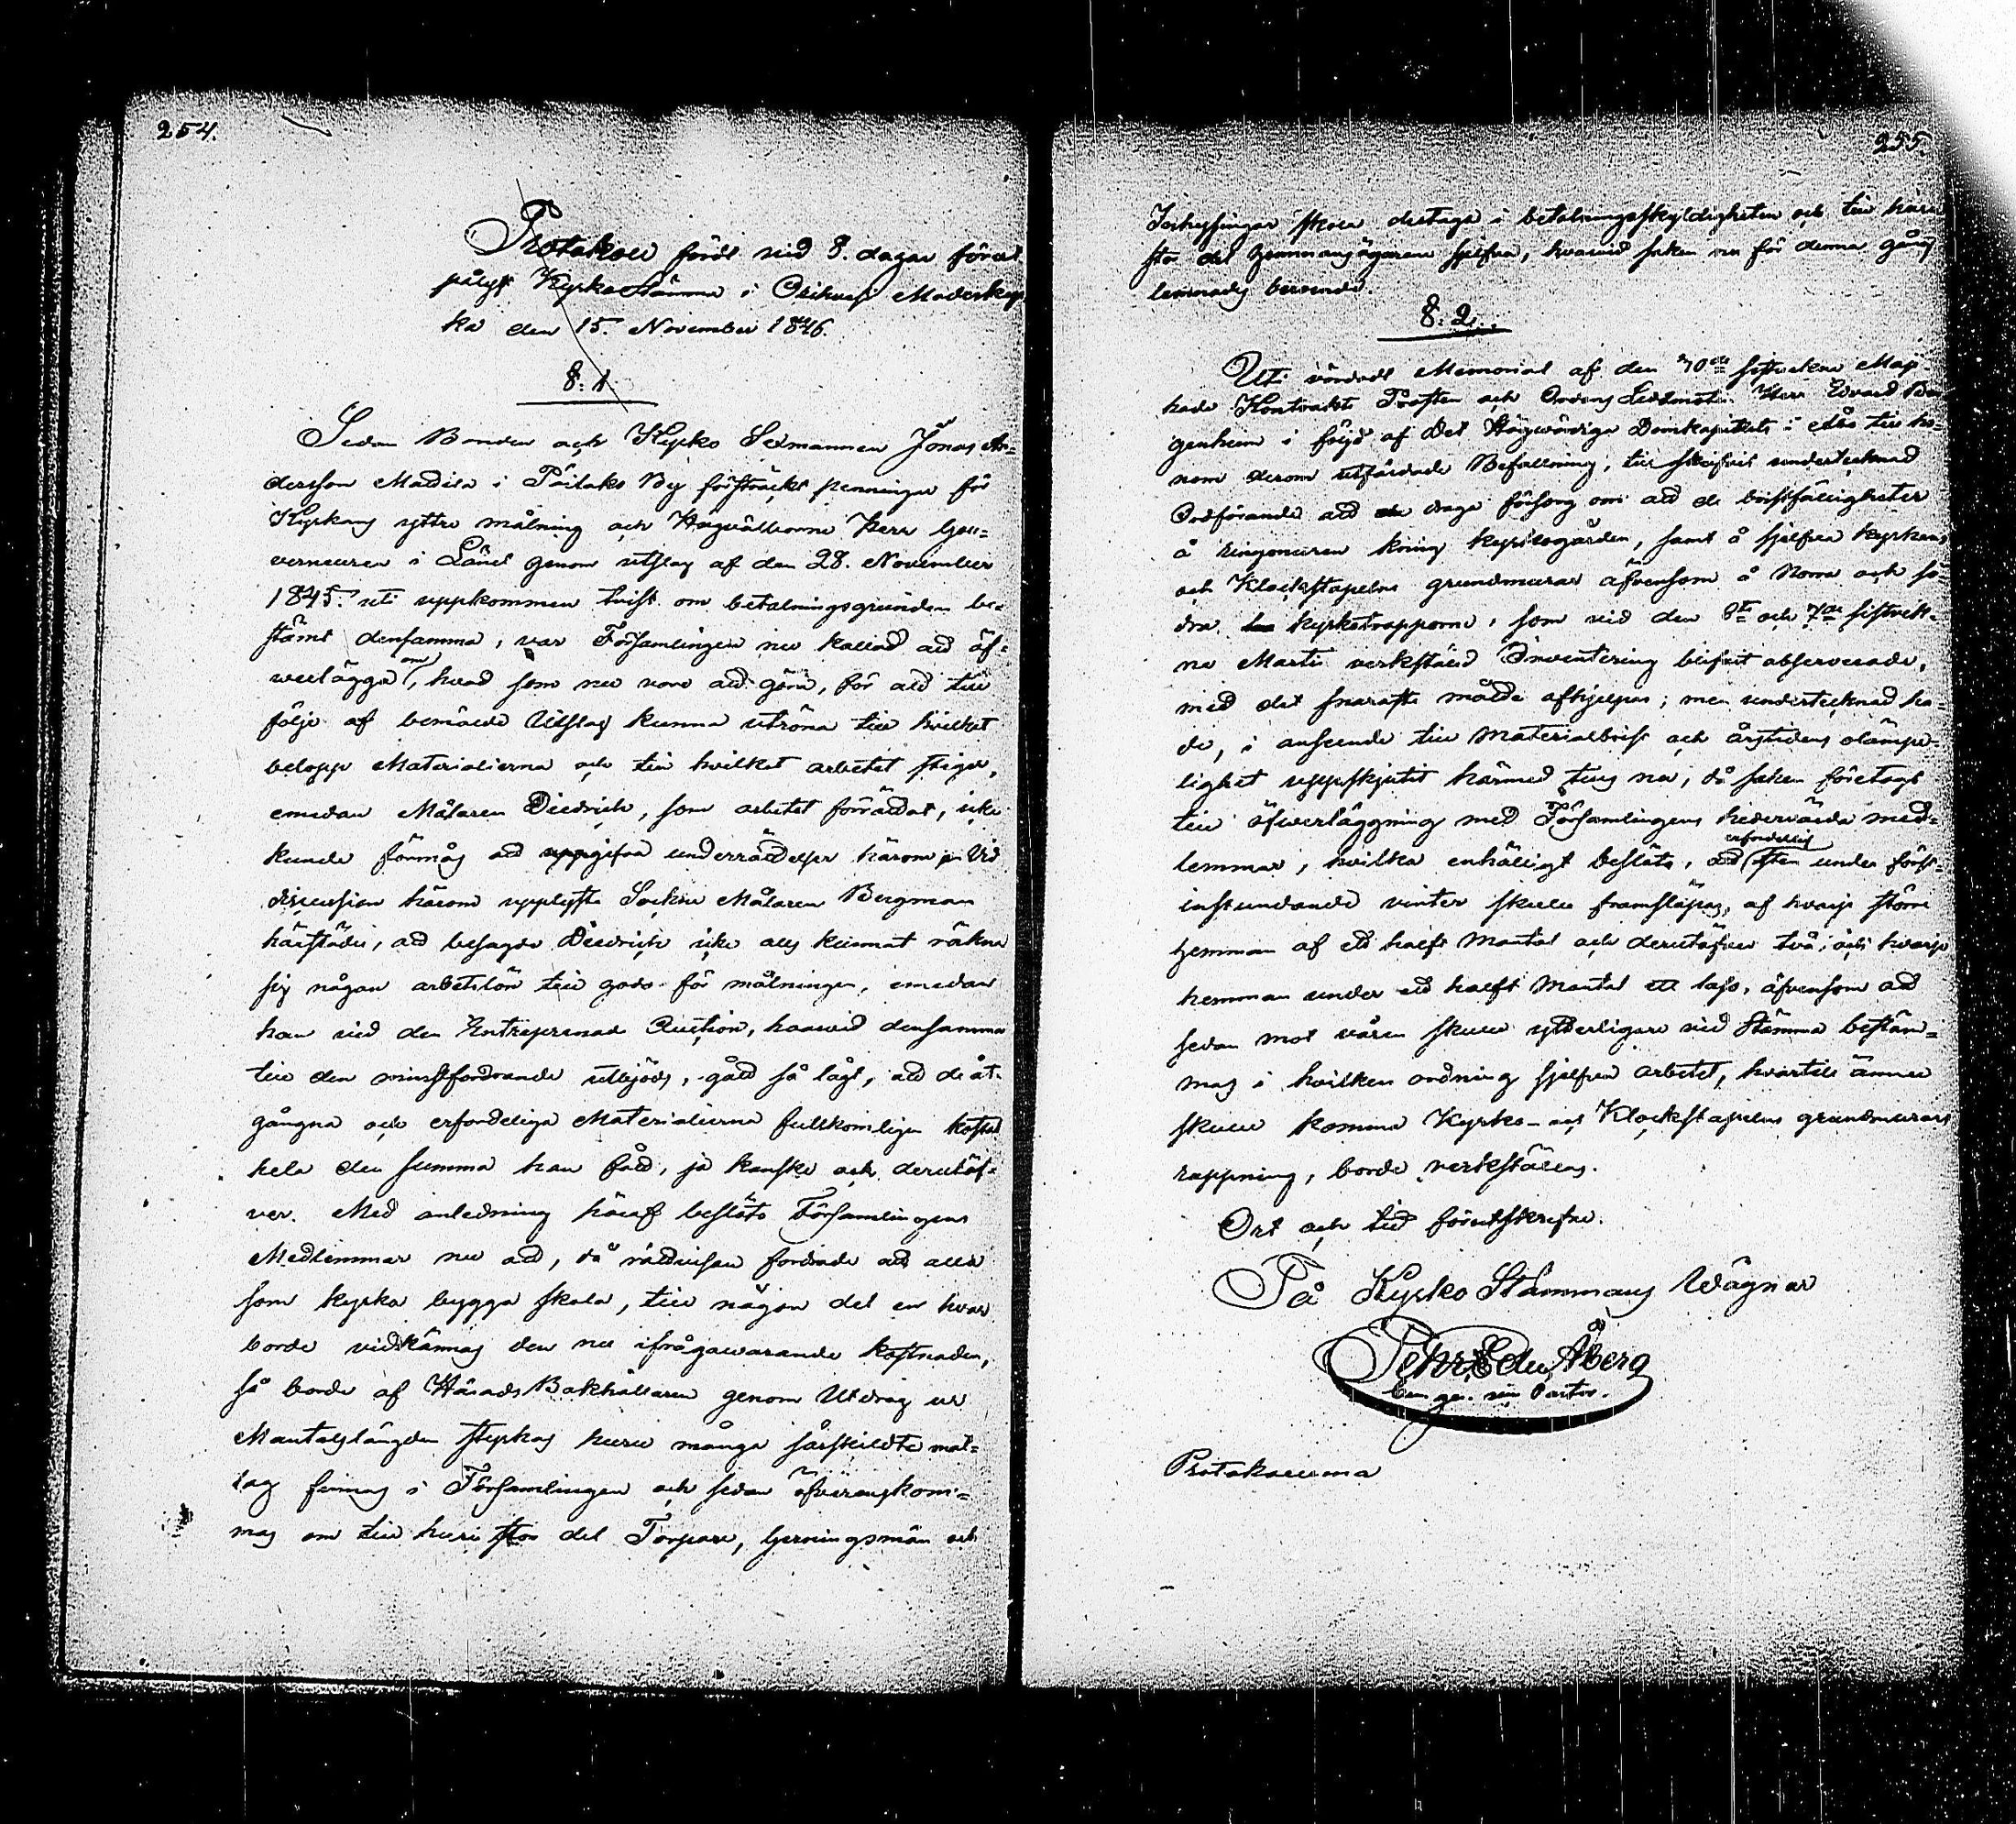 254.
Protokoll fördt vid 8. dagar förut
pålyst Kyrko Stämma i Orihvesi Moderkyr
ka den 15. November 1846.
§. 1.
Sedan Bonden och Kyrko Sexmannen Jonas An=
dersson Madila i Päilaks By försträckt penningar för
Kyrkans yttre målning och Högvälborne Herr Gou=
verneuren i Länet genom utslag af den 28. November
1845. uti uppkommen tvist om betalningsgrunden be=
stämt densamma, var Församlingen nu kallad att öf=
verlägga om, hvad som nu vore att göra, för att till
följe af bemälde Utslag kunna utröna till hvilket
belopp Materialierna och till hvilket arbetet stiger,
emedan Målaren Diedrich, som arbetet förrättat, icke
kunde förmås att uppgifva underrättelser härom. Vid
discussion härom upplyste Sockne Målaren Bergman
härstädes, att besagde Diedrich icke alls kunnat räkna
sig någon arbetslön till godo för målningen, emedan
han vid den Entreprenad Auction, hvarvid densamma
till den minstfordrande utbjöds, gått så lågt, att de åt=
gångna och erforderliga Materialierna fullkomligen kostat
hela den summa han fått, ja kanske och derutöf=
ver. Med anledning häraf beslöto Församlingens
Medlemmar nu att, då rättvisan fordrade att alla
som kyrka bygga skola, till någon del en hvar
borde vidkännas den nu ifrågavarande kostnaden,
så borde af HäradsBokhållaren genom Utdrag ur
Mantalslängden styrkas huru många särskildte mat=
lag finnas i Församlingen och sedan öfverenskom=
mas om till huru stor del Torpare, Gerningsmän och
255.
Inhysingar skola deltaga i betalningsskyldigheten och till huru
stor del Hemmansägarena sjelfva, hvarvid saken nu för denna gång
lemnades beroende.
§. 2.
Uti vördadt Memorial af den 30de sistvekne Maji
hade Kontrakts Prosten och Ordens Ledamoten Herr Edvard Ber
genheim i följd af Det Högvördiga Domkapitlets i Åbo till ho=
nom derom utfärdade Befallning, tillskrifvit undertecknad
Ordförande att draga försorg om att de bristfälligheter
å ringmuren kring kyrkogården, samt å sjelfva kyrkans
och Klockstapelns grundmurar äfvensom å Norra och sö=
dra kyrkotrapporne, som vid den 6te och 7de sistvik=
ne Martii verkstäld Inventering blifvit observerade,
med det snaraste måtte afhjelpas; men undertecknad ha=
de, i anseende till Materialbrist och årstidens olämpe=
lighet uppskjutit härmed tills nu, då saken företogs
till öfverläggning med Församlingens hedervärda med=
lemmar, hvilka enhälligt beslöto, att erforderlig sten under först=
instundande vinter skulle framsläpas, af hvarje större
hemman af ett halft Mantal och derutöfver två, och hvarje
hemman under ett halft Mantal ett lass, äfvensom att
sedan mot våren skulle ytterligare vid Stämma bestäm=
mas i hvilken ordning sjelfva arbetet, hvartill ännu
skulle komma Kyrko- och Klockstapelns grundmurars
rappning, borde verkställas.
Ort och tid förutskrefne.
På Kyrko Stämmans Vägnar
Pehr Edv. Åberg
Protokollerna